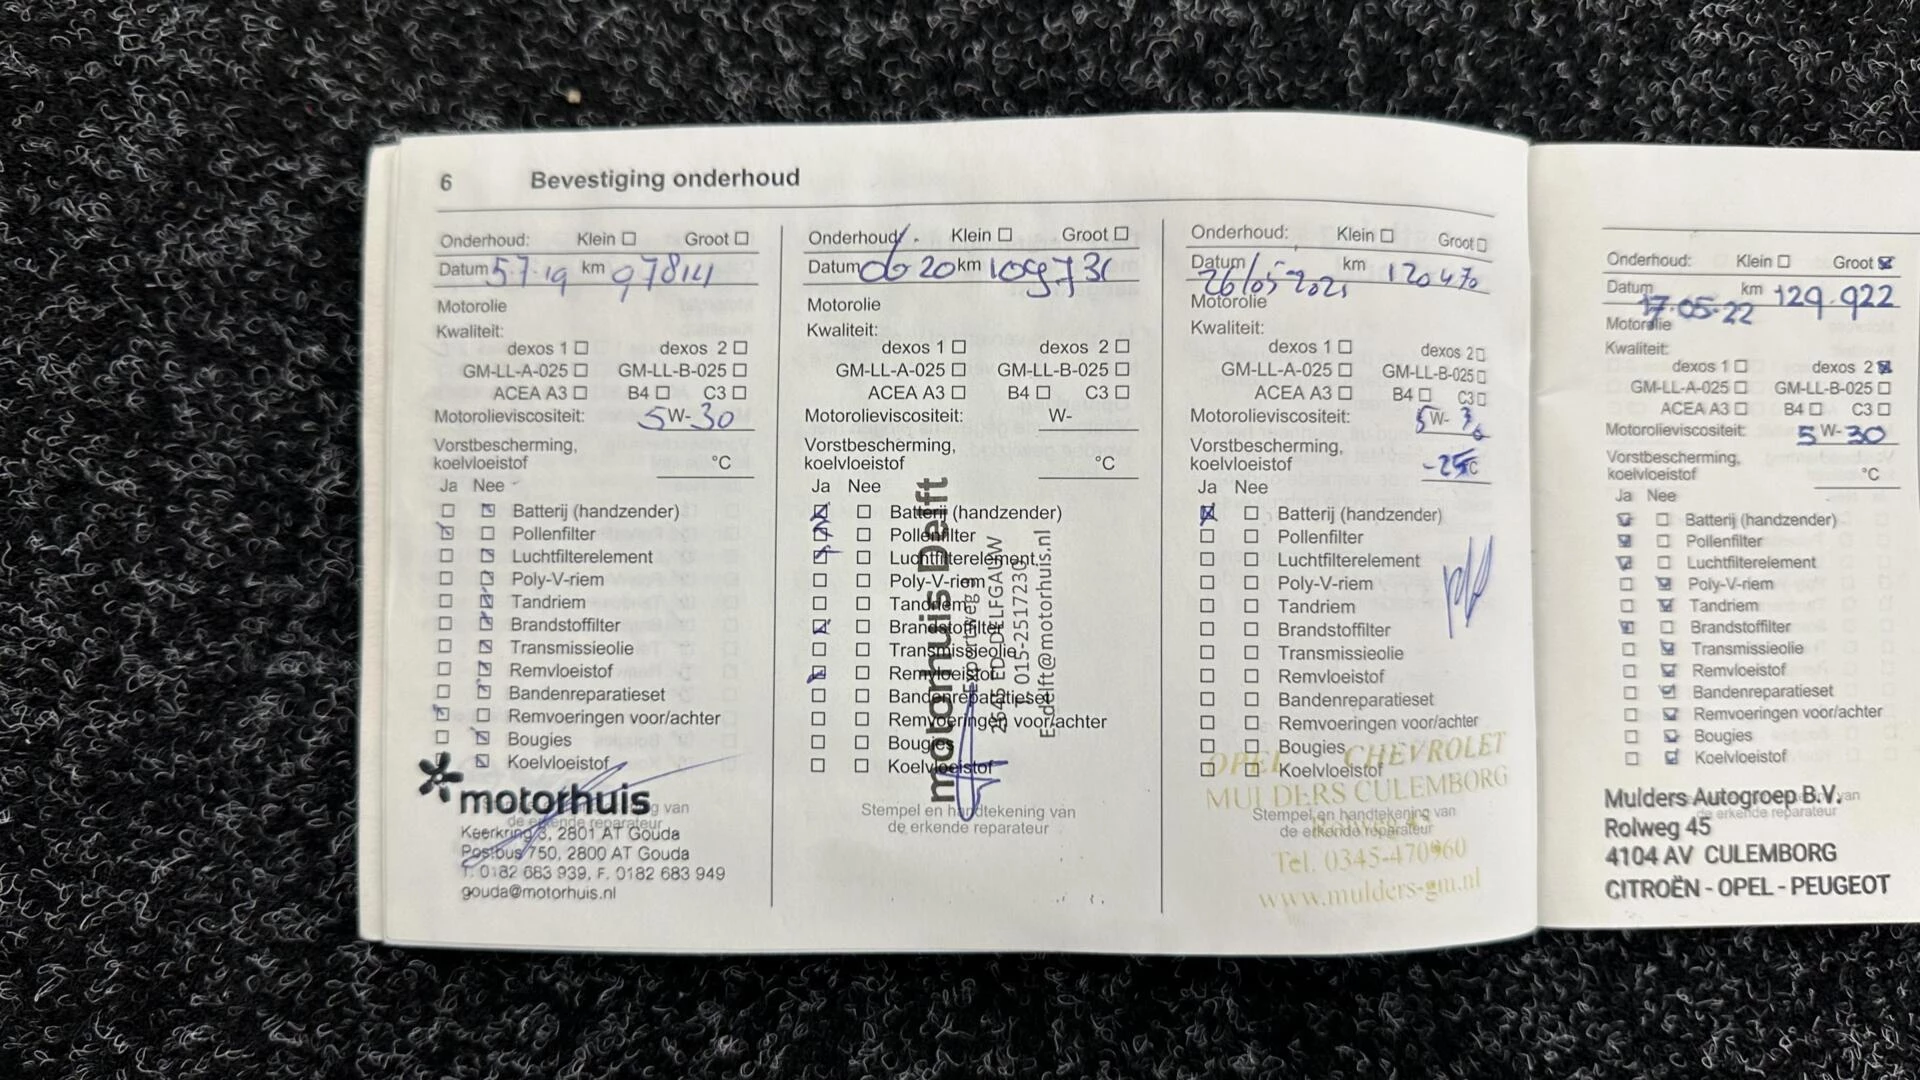 6 Bevestiging onderhoud
Onderhoud: Klein Groot
Datum 5-7-19 km 97814
Motorolie
Kwaliteit:
dexos 1 dexos 2
GM-LL-A-025 GM-LL-B-025
ACEA A3 B4 C3
Motorolieviscositeit: 5W-30
Vorstbescherming,
koelvloeistof °C
Ja Nee
Batterij (handzender)
Pollenfilter
Luchtfilterelement
Poly-V-riem
Tandriem
Brandstoffilter
Transmissieolie
Remvloeistof
Bandenreparatieset
Remvoeringen voor/achter
Bougies
Koelvloeistof
motorhuis
van
de erkende reparateur
Keerkring 3, 2801 AT Gouda
Postbus 750, 2800 AT Gouda
T. 0182 683 939, F. 0182 683 949
gouda@motorhuis.nl
Onderhoud: Klein Groot
Datum 06 20 km 109731
Motorolie
Kwaliteit:
dexos 1 dexos 2
GM-LL-A-025 GM-LL-B-025
ACEA A3 B4 C3
Motorolieviscositeit: W-
Vorstbescherming,
koelvloeistof °C
Ja Nee
Batterij (handzender)
Pollenfilter
Luchtfilterelement
Poly-V-riem
Tandriem
Brandstoffilter
Transmissieolie
Remvloeistof
Bandenreparatieset
Remvoeringen voor/achter
Bougies
Koelvloeistof
Stempel en handtekening van
de erkende reparateur
motorhuis Delft
2645 ED DELFGAUW
T 015-2517230
E delft@motorhuis.nl
Onderhoud: Klein Groot
Datum 26/05-2021 km 120470
Motorolie
Kwaliteit:
dexos 1 dexos 2
GM-LL-A-025 GM-LL-B-025
ACEA A3 B4 C3
Motorolieviscositeit: 5W-30
Vorstbescherming,
koelvloeistof -25°C
Ja Nee
Batterij (handzender)
Pollenfilter
Luchtfilterelement
Poly-V-riem
Tandriem
Brandstoffilter
Transmissieolie
Remvloeistof
Bandenreparatieset
Remvoeringen voor/achter
Bougies
Koelvloeistof
OPEL CHEVROLET
MULDERS CULEMBORG
Stempel en handtekening van
de erkende reparateur
Tel. 0345-470960
www.mulders-gm.nl
Onderhoud: Klein Groot
Datum 17-05-22 km 129.922
Motorolie
Kwaliteit:
dexos 1 dexos 2
GM-LL-A-025 GM-LL-B-025
ACEA A3 B4 C3
Motorolieviscositeit: 5W-30
Vorstbescherming,
koelvloeistof °C
Ja Nee
Batterij (handzender)
Pollenfilter
Luchtfilterelement
Poly-V-riem
Tandriem
Brandstoffilter
Transmissieolie
Remvloeistof
Bandenreparatieset
Remvoeringen voor/achter
Bougies
Koelvloeistof
Mulders Autogroep B.V.
van
de erkende reparateur
Rolweg 45
4104 AV CULEMBORG
CITROËN - OPEL - PEUGEOT